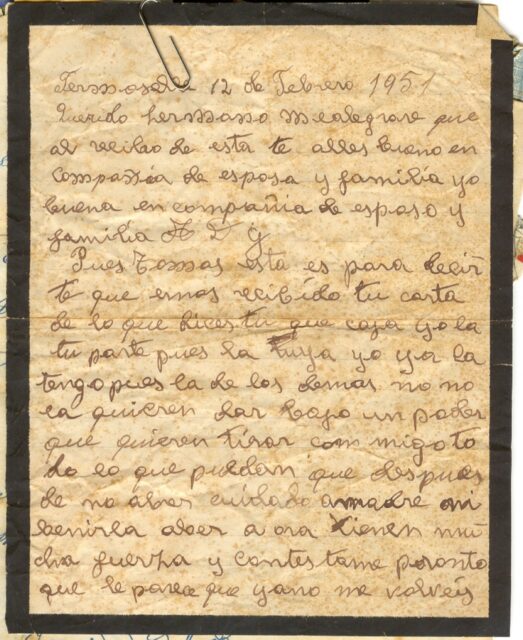 Fermoselle 12 de Febrero 1951
Querido hermano mealegrare que
al recibo de esta te alles bueno en
compañia de esposa y familia yo
buena en compañia de esposo y
familia A D G
Pues Tomas esta es para decir
te que emos recibido tu carta
de lo que dices tu que coja yo la
tu parte pues la tuya yo ya la
tengo pues la de los demas no no
la quieren dar bajo un poder
que quieren tirar com migo to
do lo que puedan que despues
de no aber cuidado amadre ni
benirla aber a ora tienen mu
cha fuerza y contestame pronto
que le parece que yano me volveis